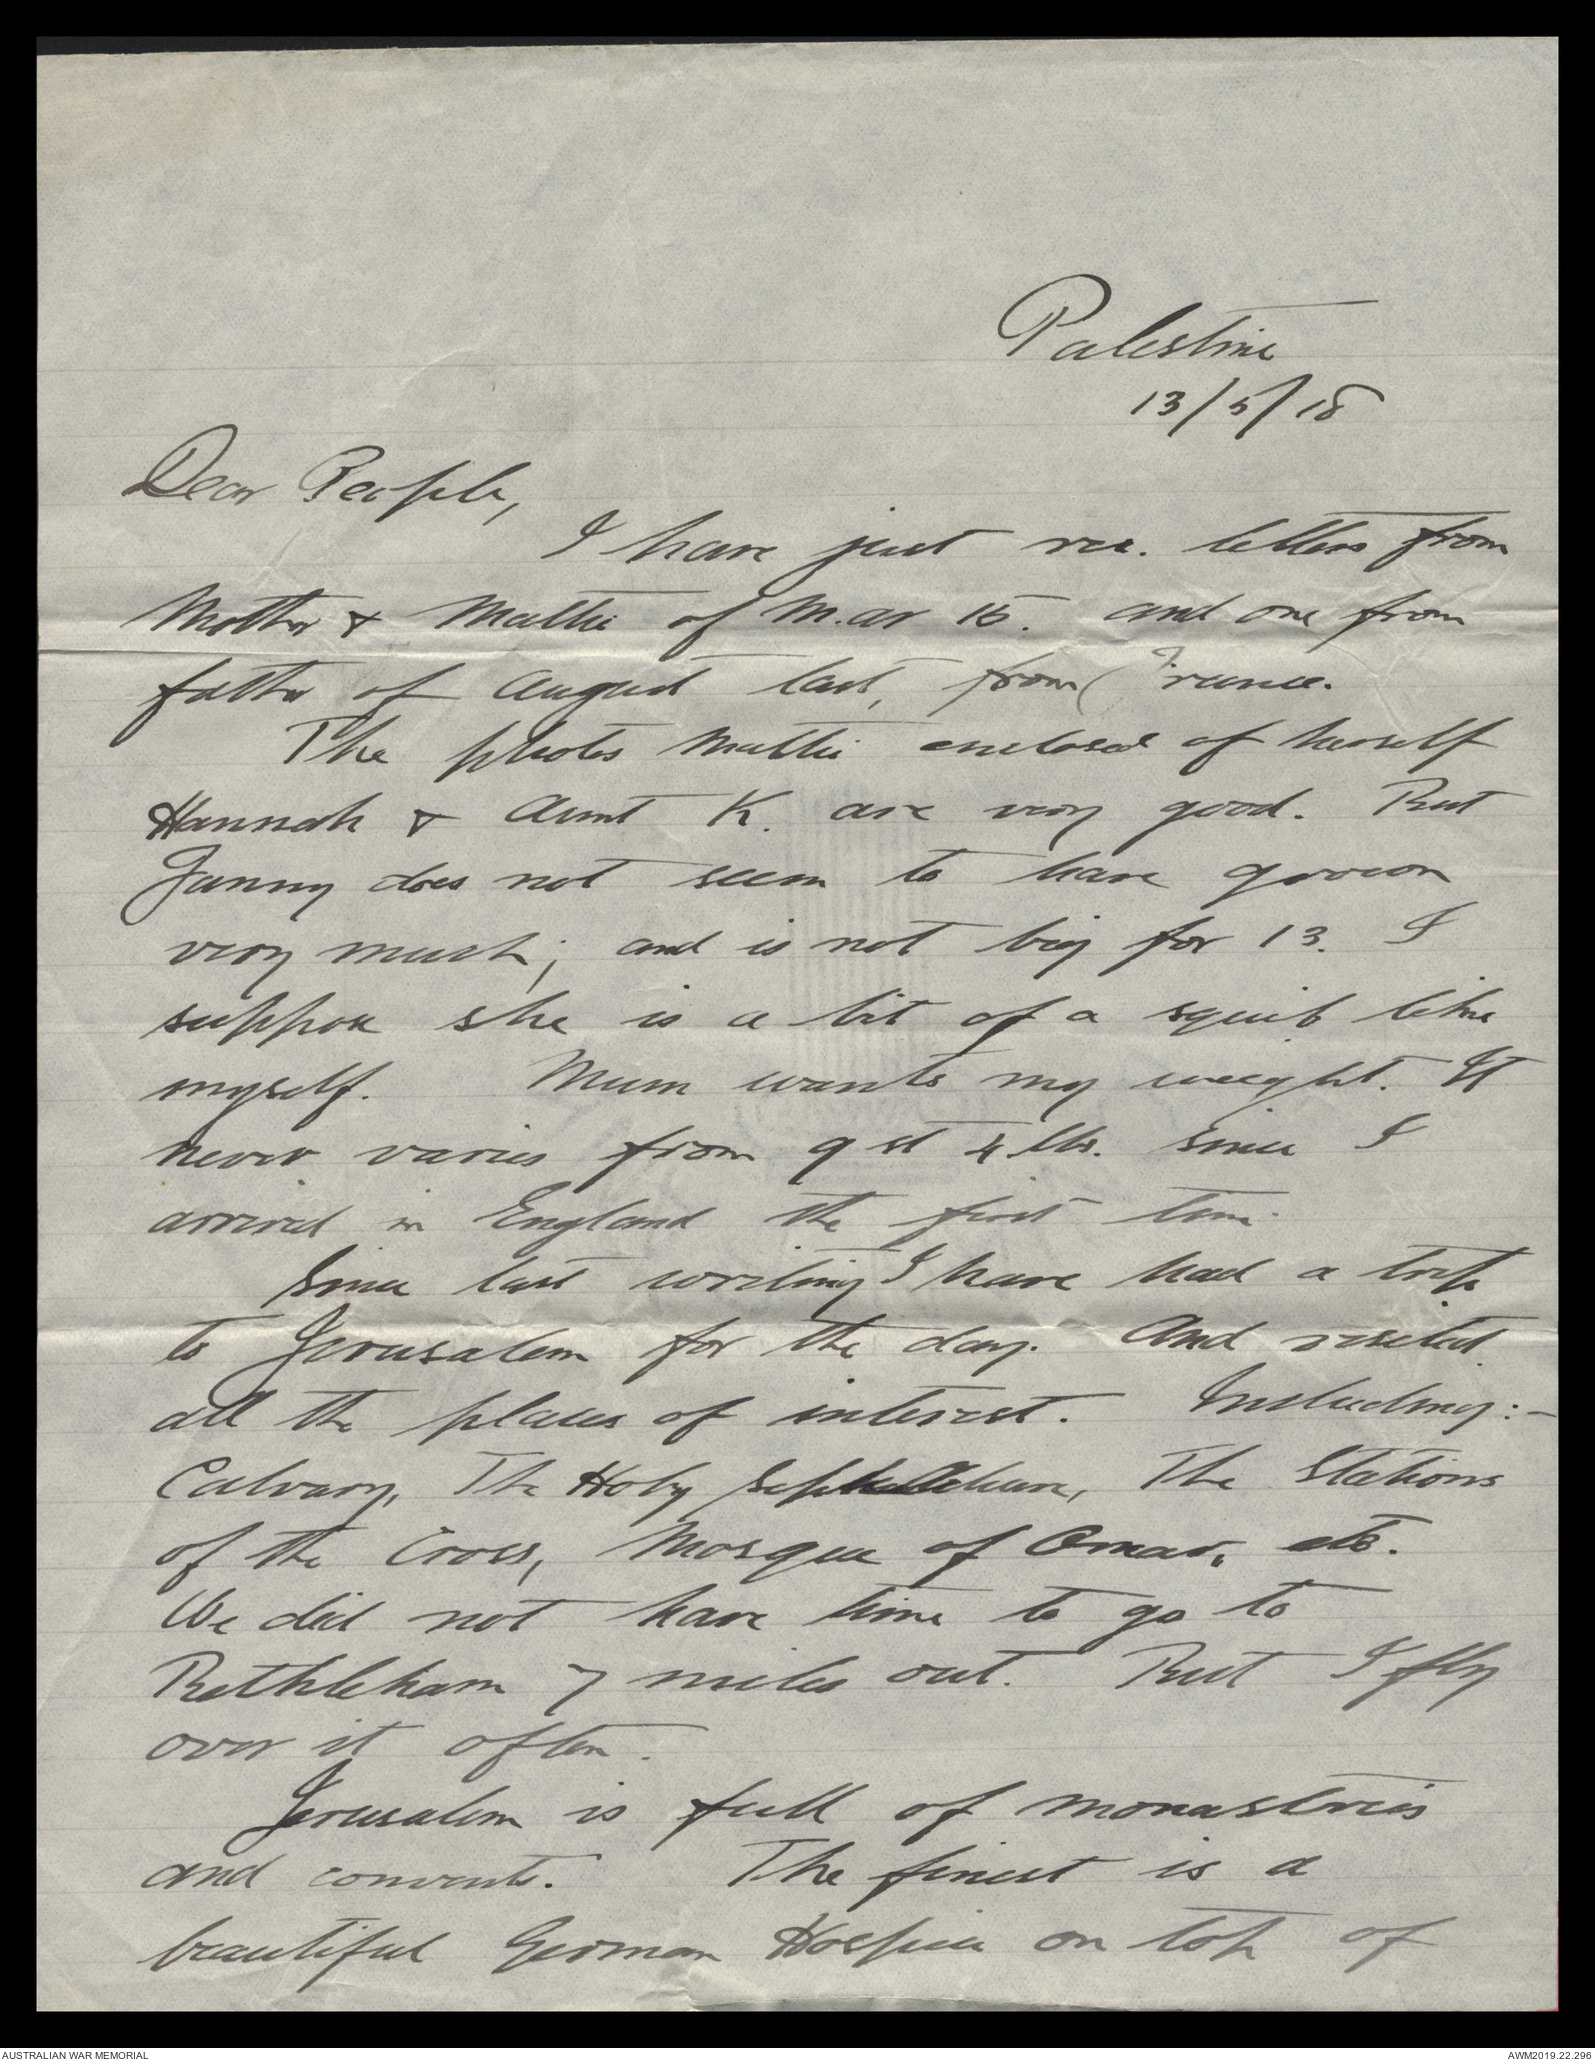 Palestine
13/5/18
Dear People,
I have just rec. letters from
Mother & Mattie of Mar 15. and one from
father of August last, from France.
The photos Mattie enclosed of herself
Hannah & Aunt K. are very good. But
Janny does not seem to have grown
very much; and is not big for 13. I
suppose she is a bit of a squib like
myself. Mum wants my weight. It
never varies from 9 st 4 lbs. since I
arrived in England the first time.
Since last writing I have had a trip
to Jerusalem for the day. And visited
all the places of interest. Including:-
Calvary, The Holy , The Stations
of the Cross, Mosque of Omar, etc.
We did not have time to go to
Bethleham 7 miles out. But I fly
over it often.
Jerusalem is full of monastries
and convents. The finest is a
beautiful German Hospice on top of
AUSTRALIAN WAR MEMORIAL
AWM2019.22.296